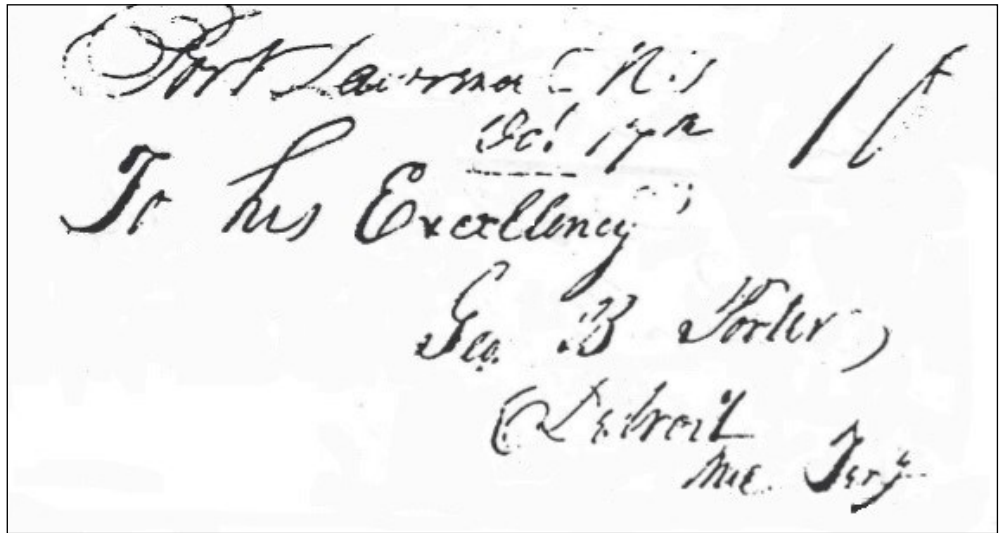 Port Lawrence M.T
Oct 17th 10
To his Excellency
Geo. B Porter,
Detroit
Mic. Tery